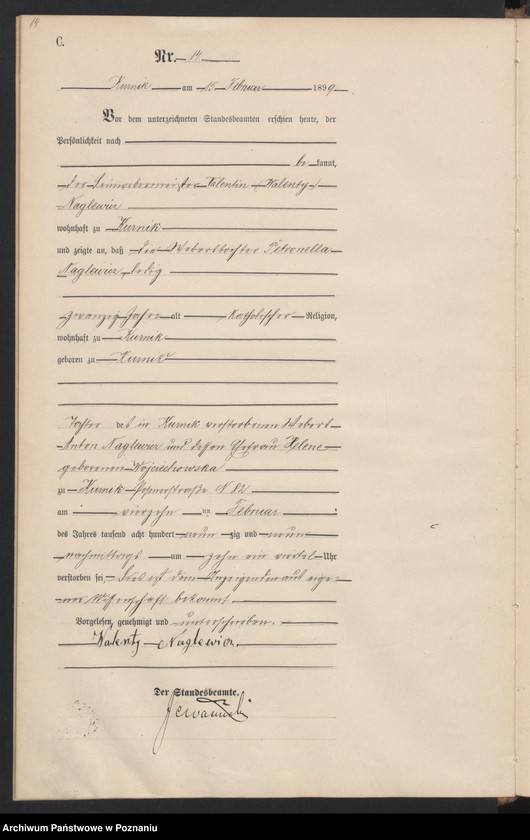 14
C.
Nr. 14
Kurnik am 15 Februar 1899
Vor dem unterzeichneten Standesbeamten erschien heute, der
Persönlichkeit nach
be kannt,
der Leinwebermeister Valentin /Walenty/
Naglewicz
wohnhaft zu Kurnik
und zeigte an, daß die Weberstochter Petronella
Naglewicz, ledig
zwanzig Jahre alt katholischer Religion,
wohnhaft zu Kurnik
geboren zu Kurnik
Tochter des in Kurnik verstorbenen Webers
Anton Naglewicz und dessen Ehefrau Helene
geborenen Wojciechowska
zu Kurnik Posenerstraße N 82
am vierzehn ten Februar
des Jahres tausend acht hundert neun zig und neun
nachmittags um zehn ein viertel Uhr
verstorben sei, Dies ist dem Anzeigenden aus eige-
ner Wissenschaft bekannt.
Vorgelesen, genehmigt und unterschrieben.
Walenty Naglewicz.
Der Standesbeamte.
Archiwum Państwowe w Poznaniu